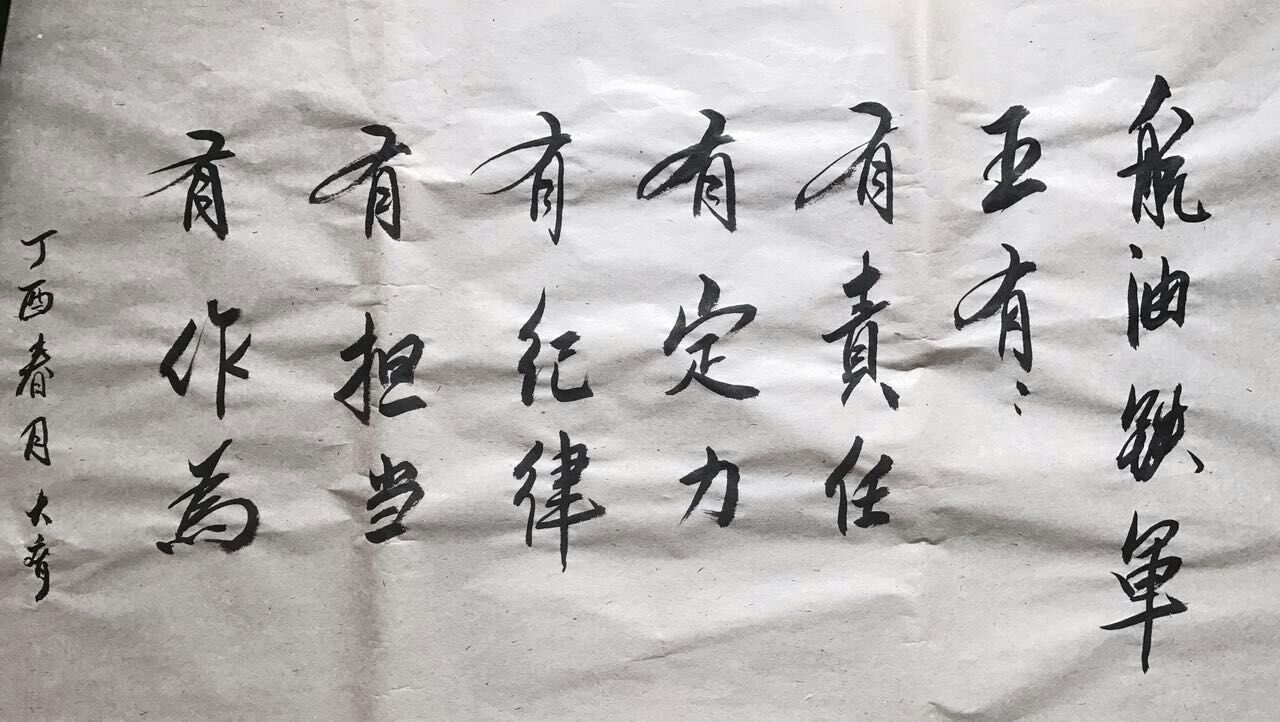 航油铁軍
五有：
有責任
有定力
有纪律
有担当
有作為
丁酉春月 大